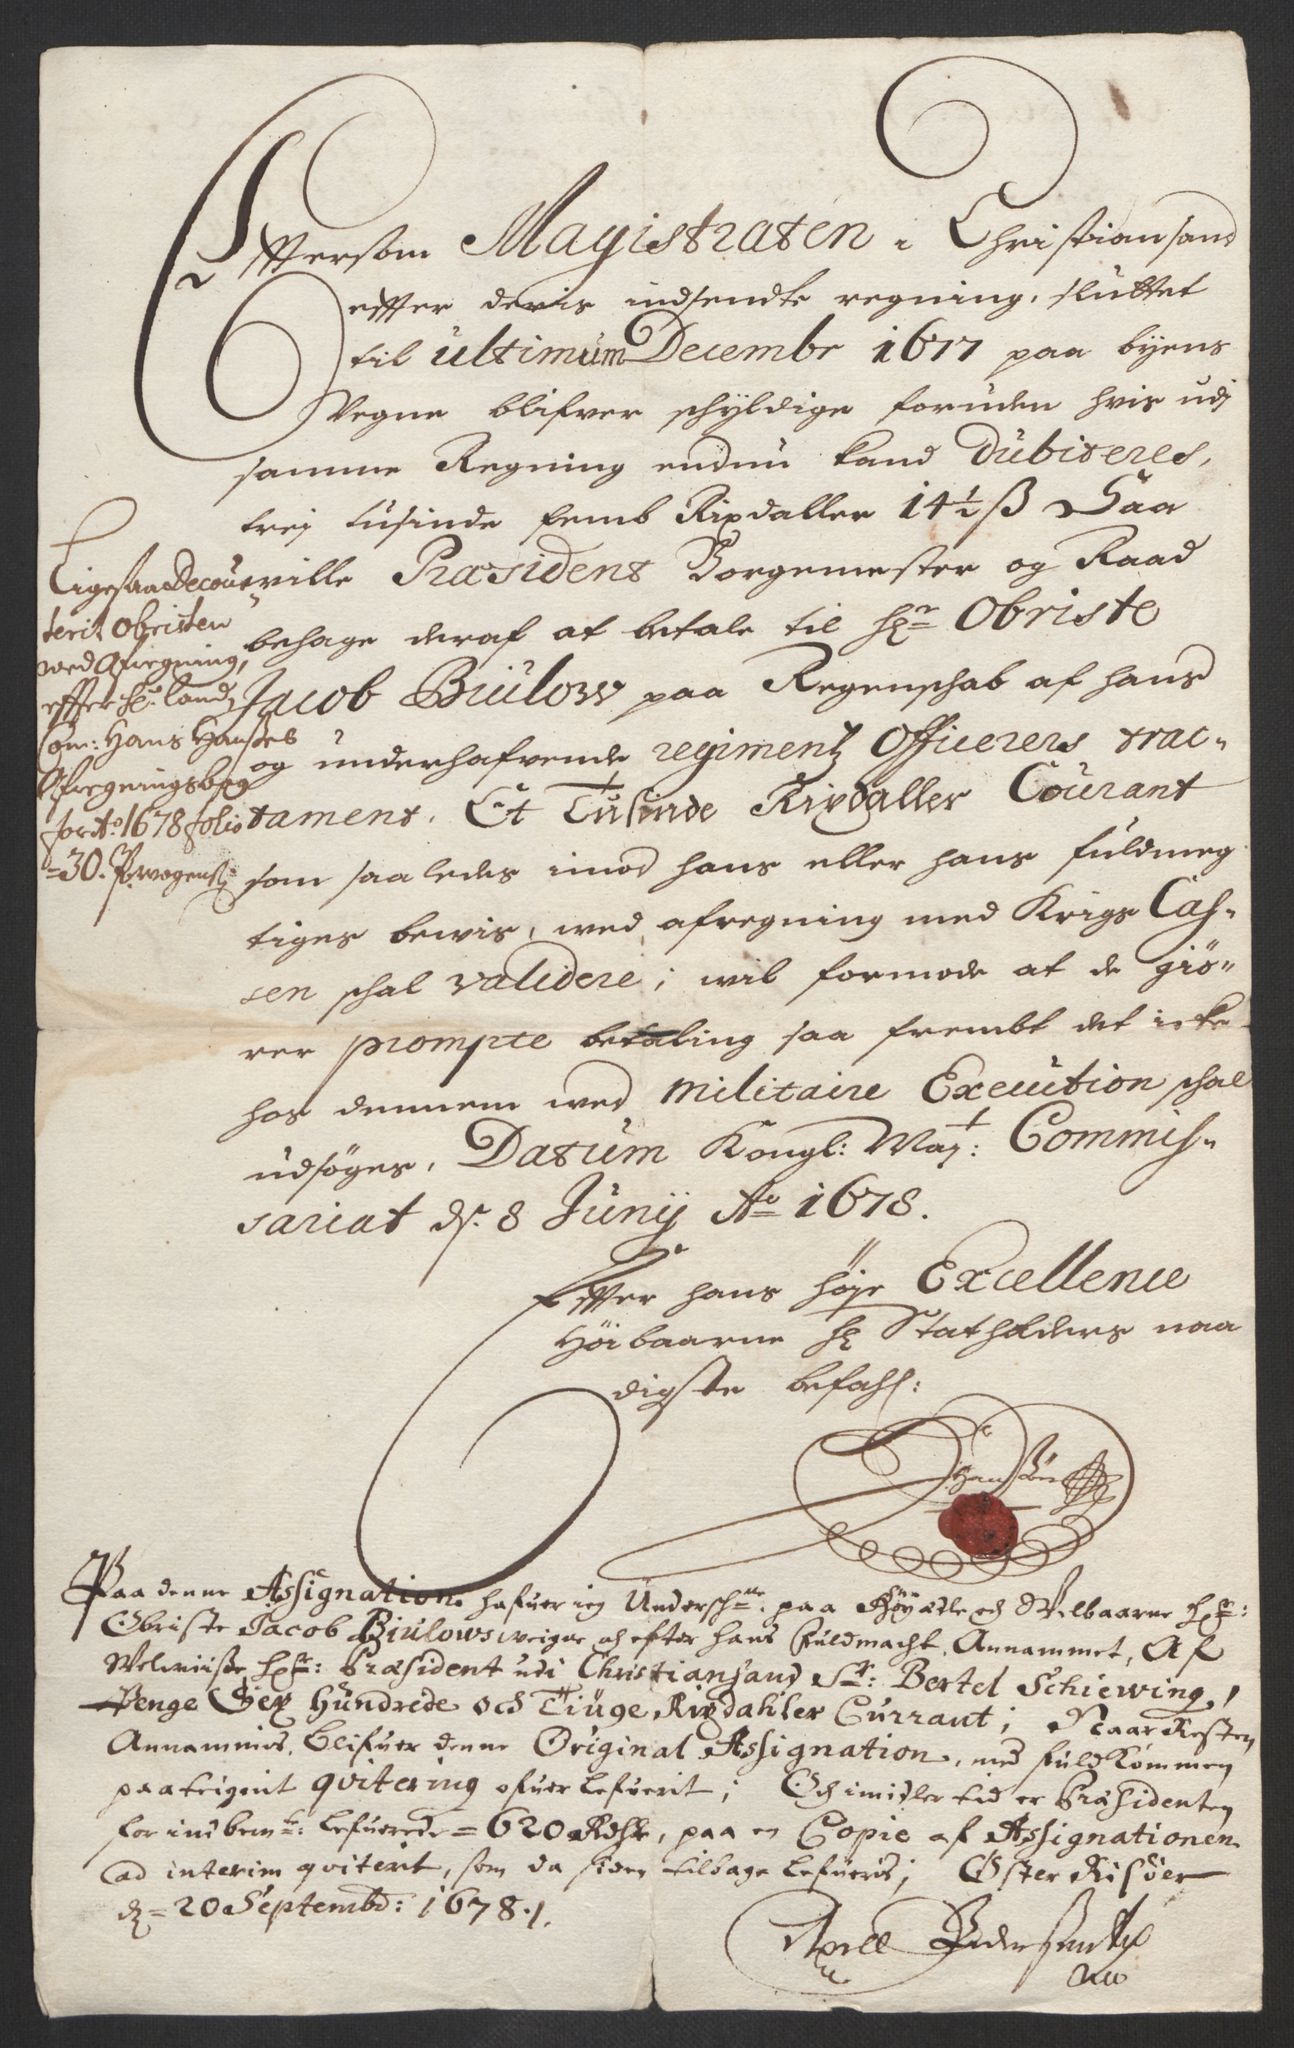 Effersom Magistraten i Christiansand
effter deris indsendte regning, sluttet
til ultimum Decembr 1677 paa byens
Vegne blifver schyldige foruden hvis udj
samme Regning endnu kand dubiteres,
trej tusinde femb Rixdaller 14½ ß Saa
ville Præsident Borgemester og Raad
behage deraf at betale til Hr Obriste
Jacob Biülow paa Regenschab af hans
og underhafvende regimentz Officerers trac-
tament, Et Tusinde Rixdaller Courant
som saaledes imod hans eller hans fuldmeg
tiges bewis, wed afregning med Krigs Cas-
sen schal validere; wil formode at de giö-
rer prompte betaling saa frembt det icke
hos dennem wed militaire Execution schal
udsöges, Datum Kongl: Maj:t Commis-
sariat ds. 8 Junij Ao 1678.
Effter hans höje Excellence
Höibaarne Hr Statholders naa
digste befahl:
Ligesaa Decour
terit Obristen
wed Afregning,
effter Hr Land
Com: Hans Hansens
Afregningsbog
for Ao 1678 folio
=30.
Paa denne Assignation hafuer ieg Underschne. paa Höyædle och Welbaarne Hr:
Obriste Jacob Biulows weigne och efter hans Fuldmacht, Annammet, Af
Welwiise Hr: Præsident udi Christiansand Sr: Bertel Schiewing,
Penge Sex Hundrede och Tiuge Rixdahler Currant; Naar Resten
Annammis, blifuer denne Original Assignation, med fuldkommen
paategnit qvitering ofuer lefuerit; Och imidler tid er Præsidenten
for ind bemte: lefuerede =620 Rdhlr, paa en Copie af Assignationen
ad interim qviterit, som da siden tilbage lefueris; Øster Riisöer
dn =20 Septembr: 1678.
Axell Pedersen